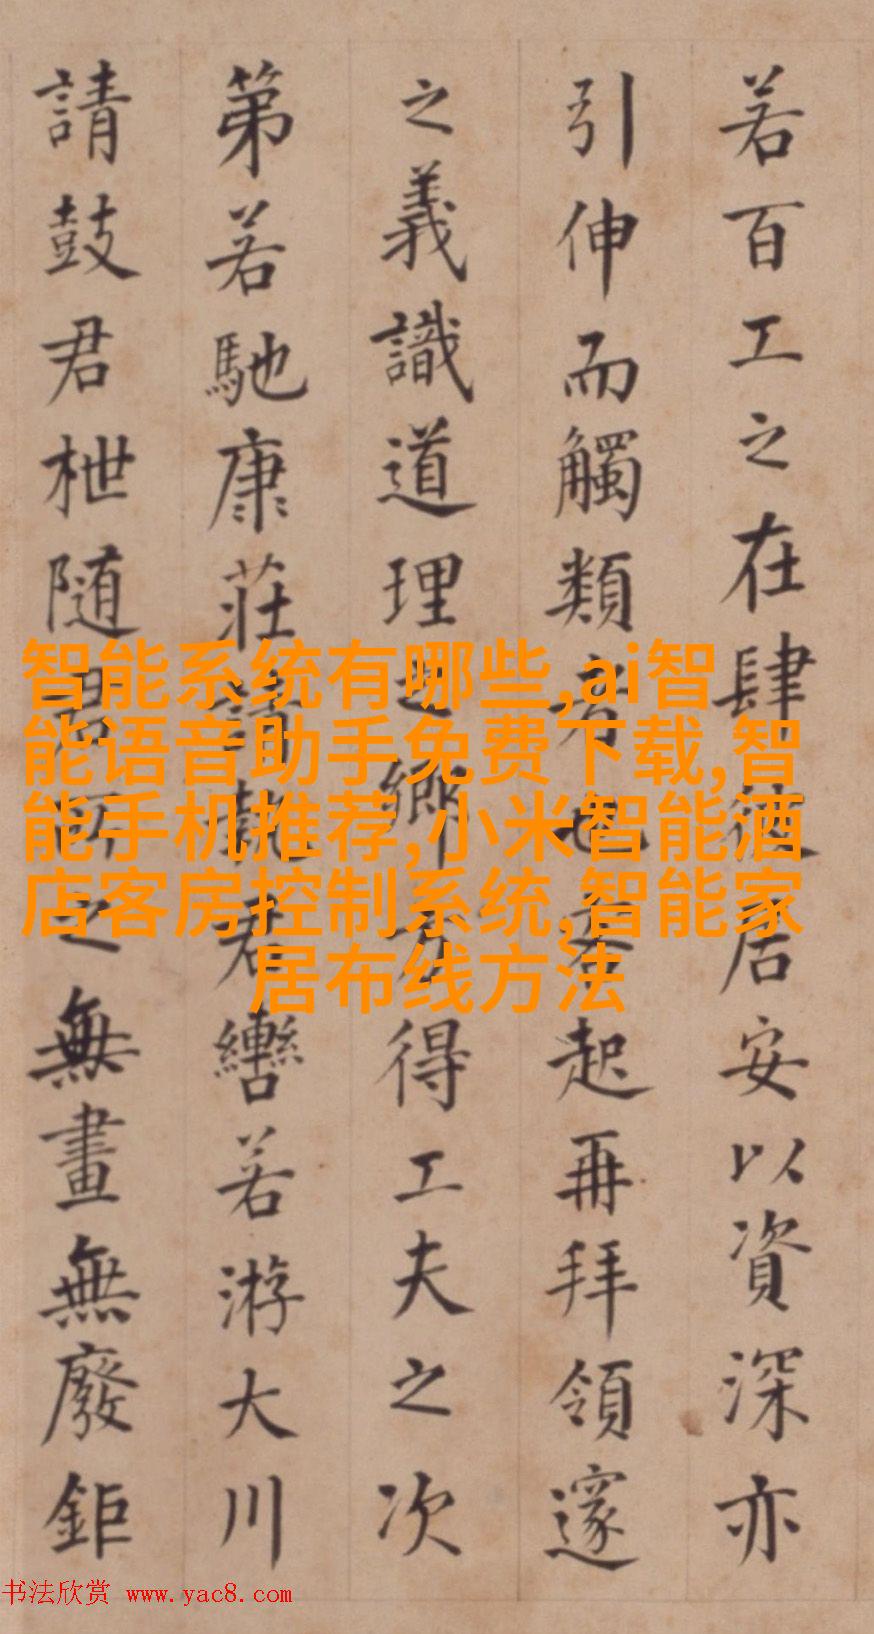 若百工之在肆居安以資深亦
引伸而觸類者也起再拜領邃
之義識道理之鄉方得工夫之次
第若馳康莊請執君轡若游大川
請鼓君枻随君所之無畫無廢鉅
智能系统有哪些,ai智
能语音助手免费下载,智
能手机推荐,小米智能酒
店客房控制系统,智能家
居布线方法
书法欣赏 www.yac8.com